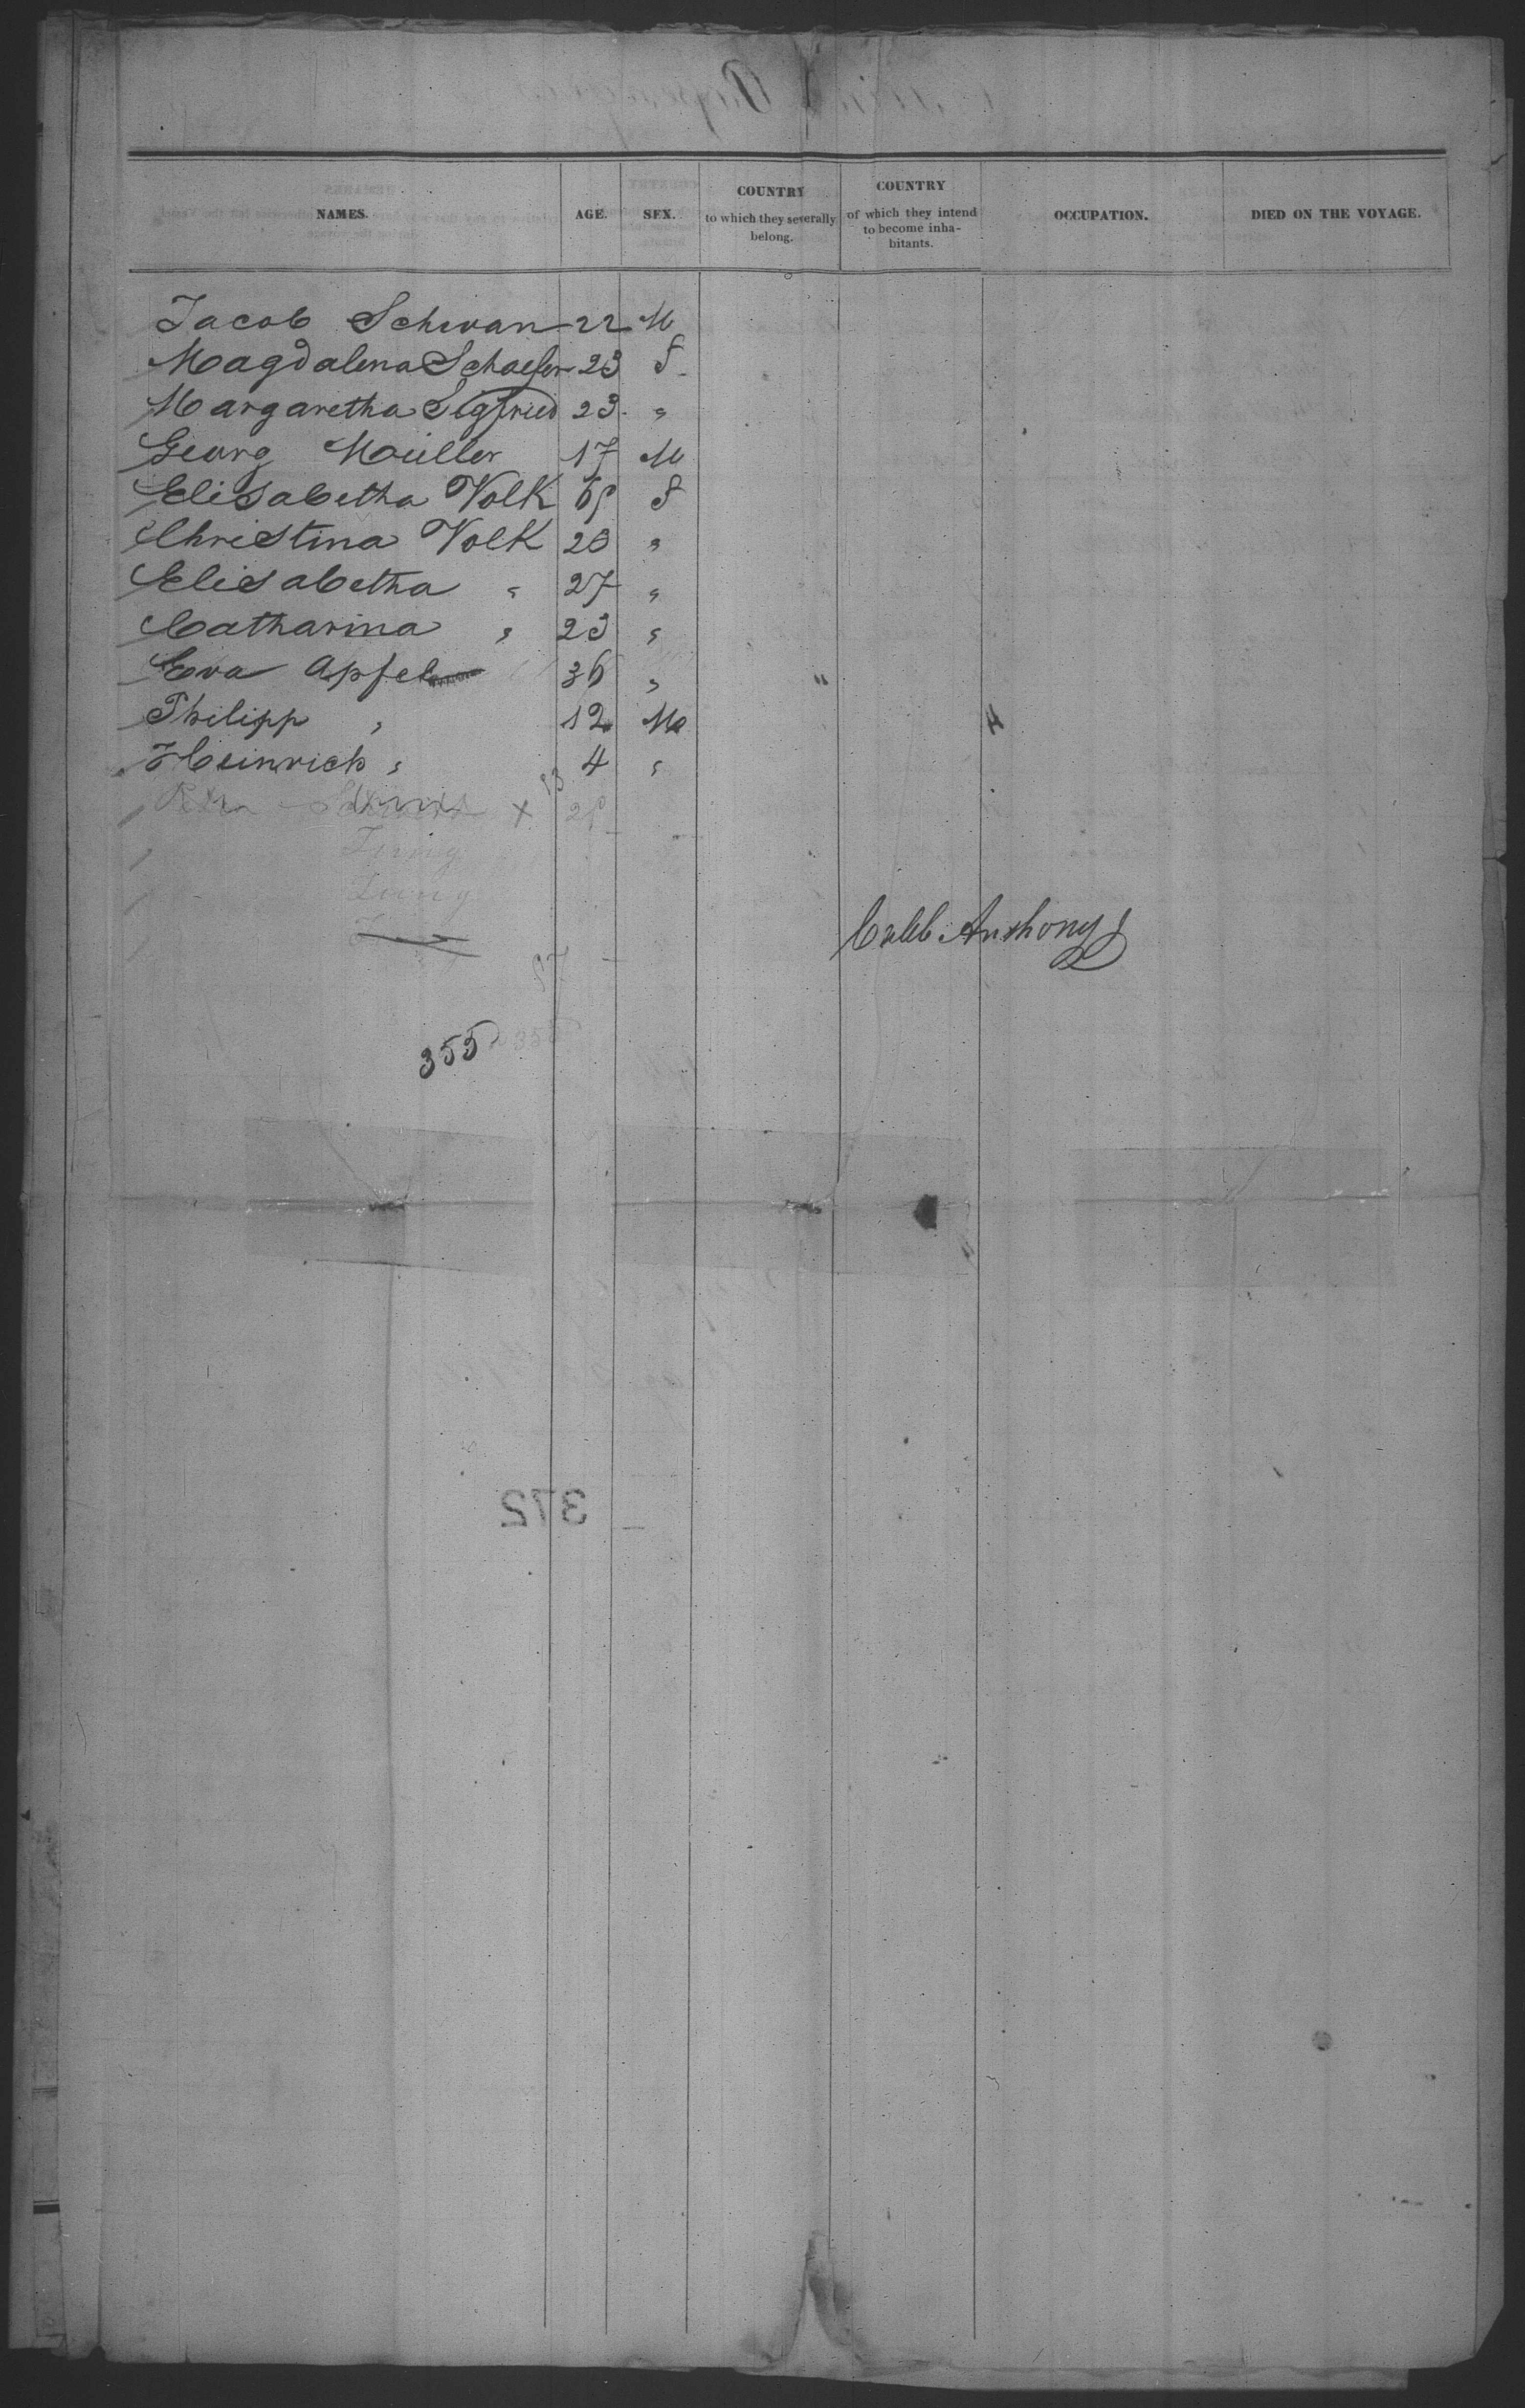 NAMES. AGE. SEX. COUNTRY to which they severally belong. COUNTRY of which they intend to become inha-bitants. OCCUPATION. DIED ON THE VOYAGE.
Jacob Schwan 22 M
Magdalena Schaefer 23 F
Margaretha Sigfried 23 "
Georg Müller 17 M
Elisabetha Volk 65 F
Christina Volk 23 "
Elisabetha " 27 "
Catharina " 23 "
Eva Apfel 36 "
Philipp " 12 M
Heinrich " 4 "
Jung
Jung
Caleb Anthony
355
372